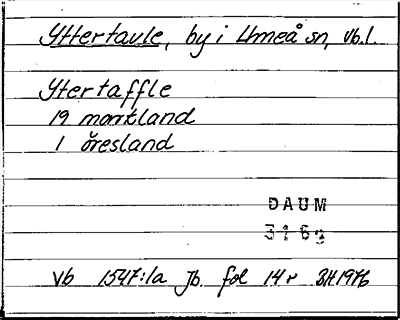 Yttertavle, by i Umeå sn, Vb.l.
Ytertaffle
19 markland
1 öresland
DAUM
3163
Vb 1547:1a Jb. fol 14r BH1976